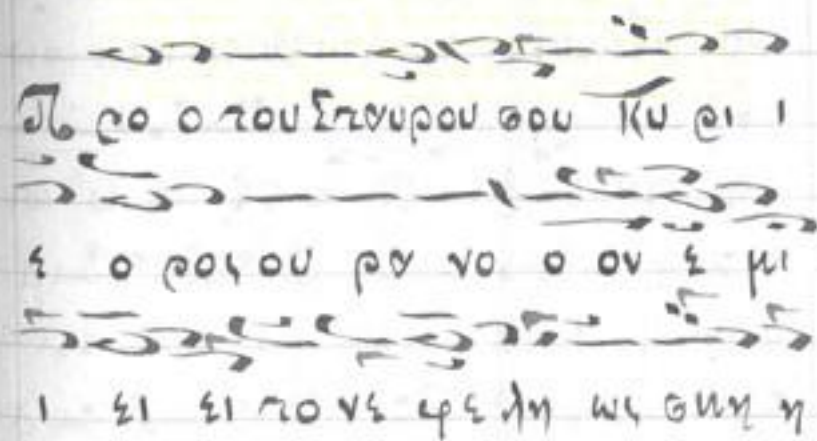 Προ ο του Σταυρου σου Κυ ρι ι
ε ο ρος ου ρα νο ο ον ε μι
ι ει ει το νε φε λη ως σκη η